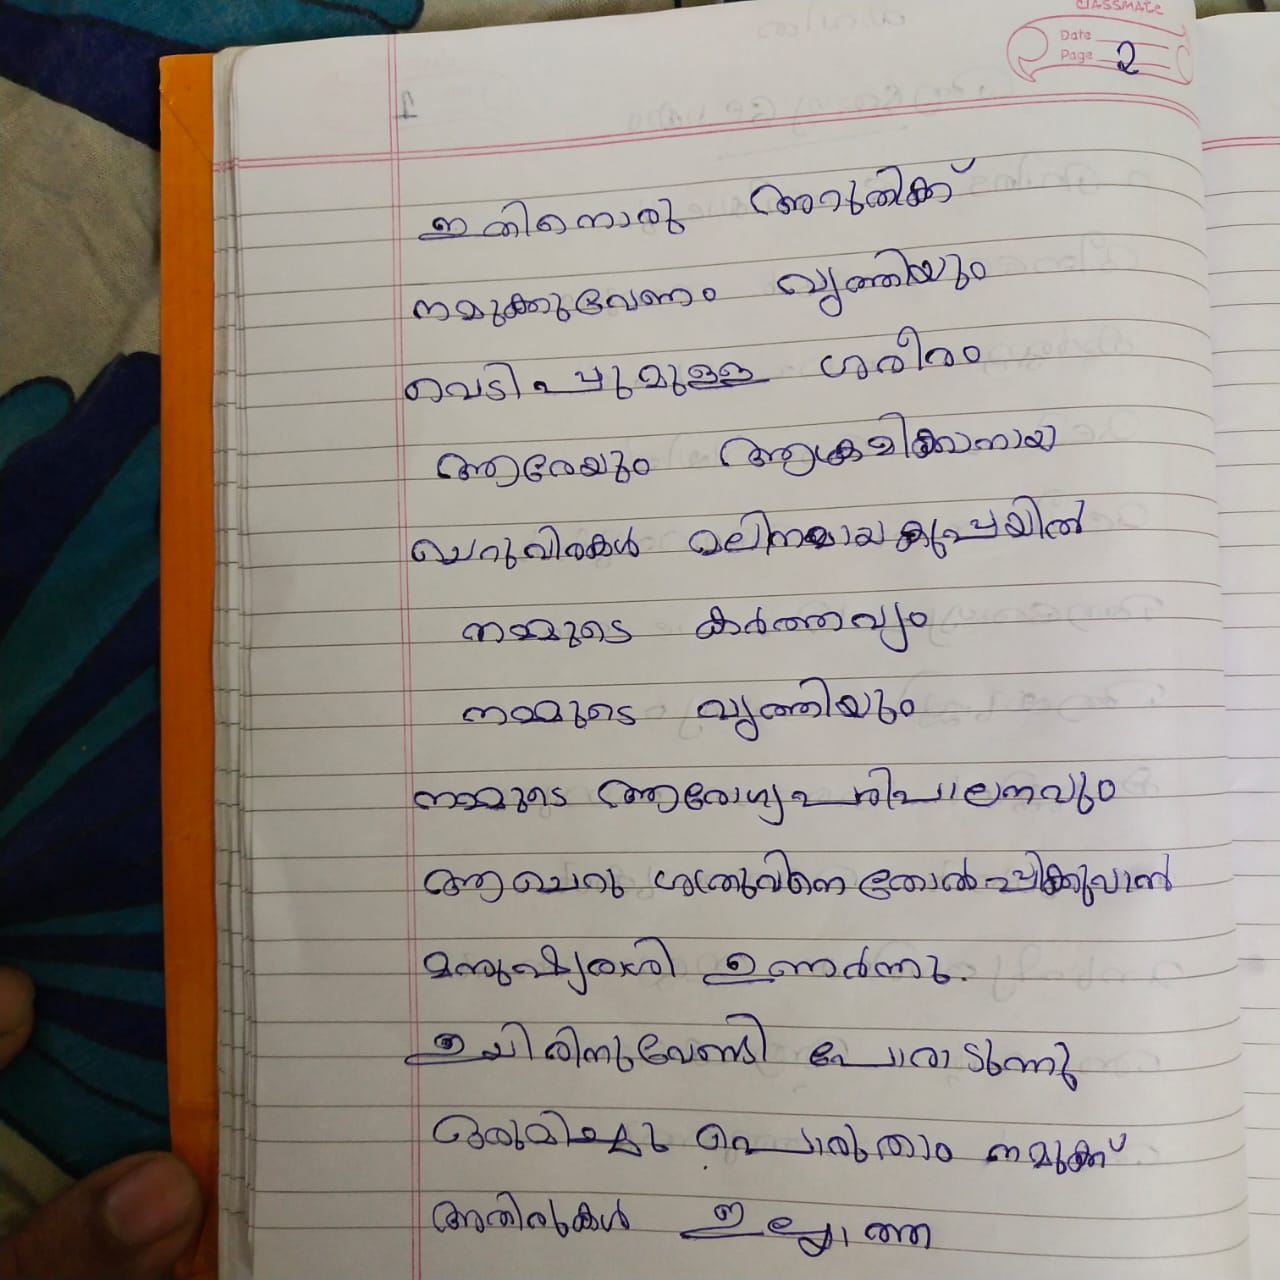 CLASSMATE
Date
Page 2
ഇതിനൊരു അറുതിക്ക്
നമുക്കുവേണം വൃത്തിയും
വെടിപ്പുമുള്ള ശരീരം
ആരേയും ആക്രമിക്കാനായ്
ചെറുവിരകൾ മലിനമായ കുപ്പയിൽ
നമ്മുടെ കർത്തവ്യം
നമ്മുടെ വൃത്തിയും
നമ്മുടെ ആരോഗ്യപരിപാലനവും
ആ ചെറു ശത്രുവിനെ തോൽപ്പിക്കുവാൻ
മനുഷ്യരാശി ഉണർന്നു.
ഉയിരിനുവേണ്ടി പോരാടുന്നു
ഒരുമിച്ചു പൊരുതാം നമുക്ക്
അതിരുകൾ ഇല്ലാത്ത